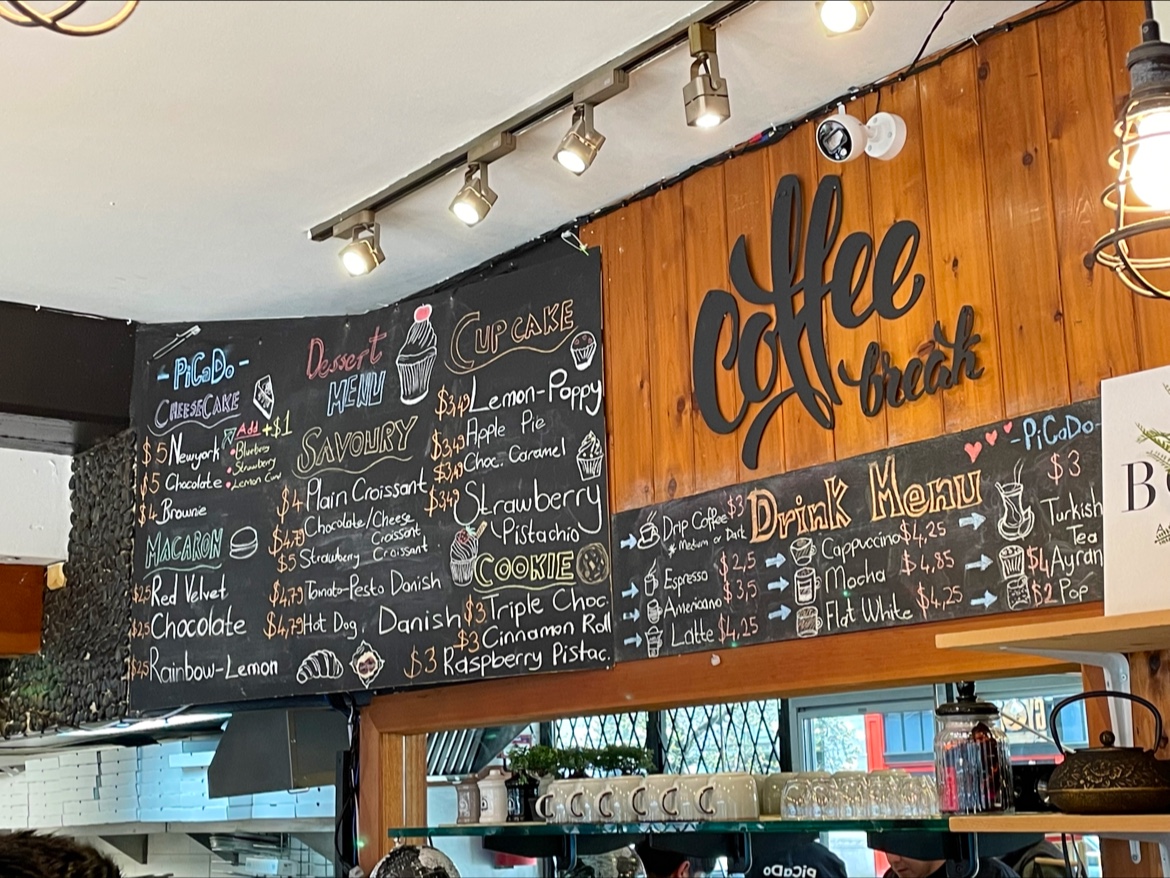 -PiCaDo-
CHEESECAKE
$5 Newyork
Add +$1
• Blueberry
• Strawberry
• Lemon Curd
$5 Chocolate
$4 Brownie
MACARON
$2,5 Red Velvet
$2,5 Chocolate
$2,5 Rainbow-Lemon
Dessert
MENU
SAVOURY
$4 Plain Croissant
$4,79 Chocolate/Cheese
Croissant
$5 Strawberry Croissant
$4,79 Tomato-Pesto Danish
$4,79 Hot Dog Danish
CUPCAKE
$3,49 Lemon-Poppy
$3,49 Apple Pie
$3,49 Choc. Caramel
$3,49 Strawberry
Pistachio
COOKIE
$3 Triple Choc.
$3 Cinnamon Roll
$3 Raspberry Pistac.
coffee
break
Drink Menu
-PiCaDo-
Drip Coffee $3
* Medium or Dark
Espresso $2,5
Americano $3,5
Latte $4,25
Cappuccino $4,25
Mocha $4,85
Flat White $4,25
$3
Turkish
Tea
$4 Ayran
$2 Pop
B